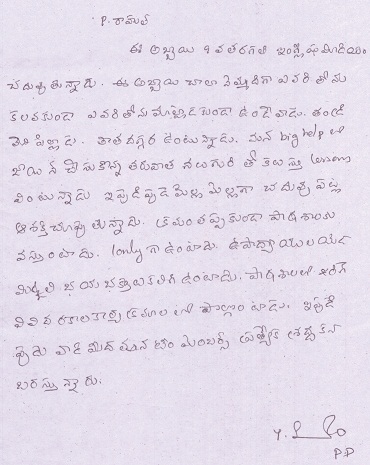 P. రామ్‌లల్
ఈ అబ్బాయి 9 వ తరగతి ఇంగ్లీషు మీడియం
చదువుతున్నాడు. ఈ అబ్బాయి చాలా నెమ్మదిగా ఎవరి తోను
కలవకుండా ఎవరితోను మాట్లాడకుండా ఉండేవాడు. తండ్రి
లేని పిల్లాడు. తాత దగ్గర ఉంటున్నాడు. మన big help లో
జాయిన్ చేసుకొన్న తరువాత నలుగురి తో కలస్తు lessons
వింటున్నాడు ఇప్పుడిప్పుడె మెల్ల మెల్లగా చదువు పట్ల
ఆశక్తి చూపుతున్నాడు. క్రమం తప్పకుండా పాఠశాలకు
వస్తుంటాడు. lonly గా ఉంటాడు. ఉపాధ్యాయులయెడ
భయభక్తులు కలిగి ఉంటాడు. పాఠశాలలో జరిగే
వివిధ రకాల కార్యక్రమాల లో పాల్గొంటాడు. ఇప్పుడి
ప్పుడు వాడి మీద మన టీం మెంబర్స్ ప్రత్యేక శ్రద్ధ కన
బరస్తున్నారు.
P.D